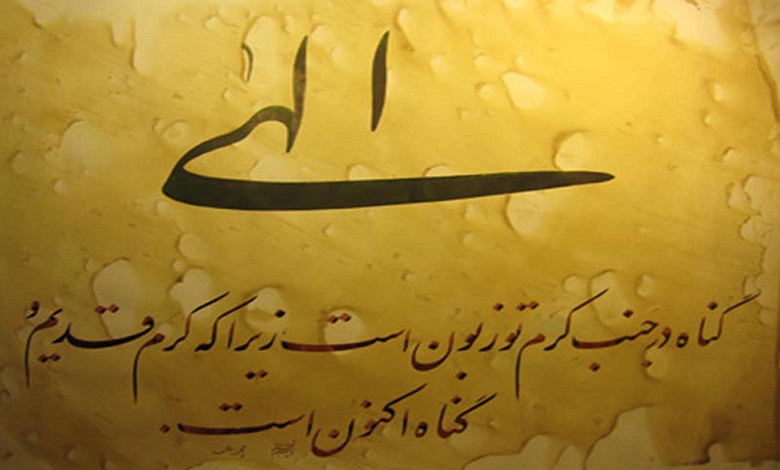 الهی
گناه در جنب کرم تو زبون است زیرا که کرم قدیم و
گناه اکنون است.